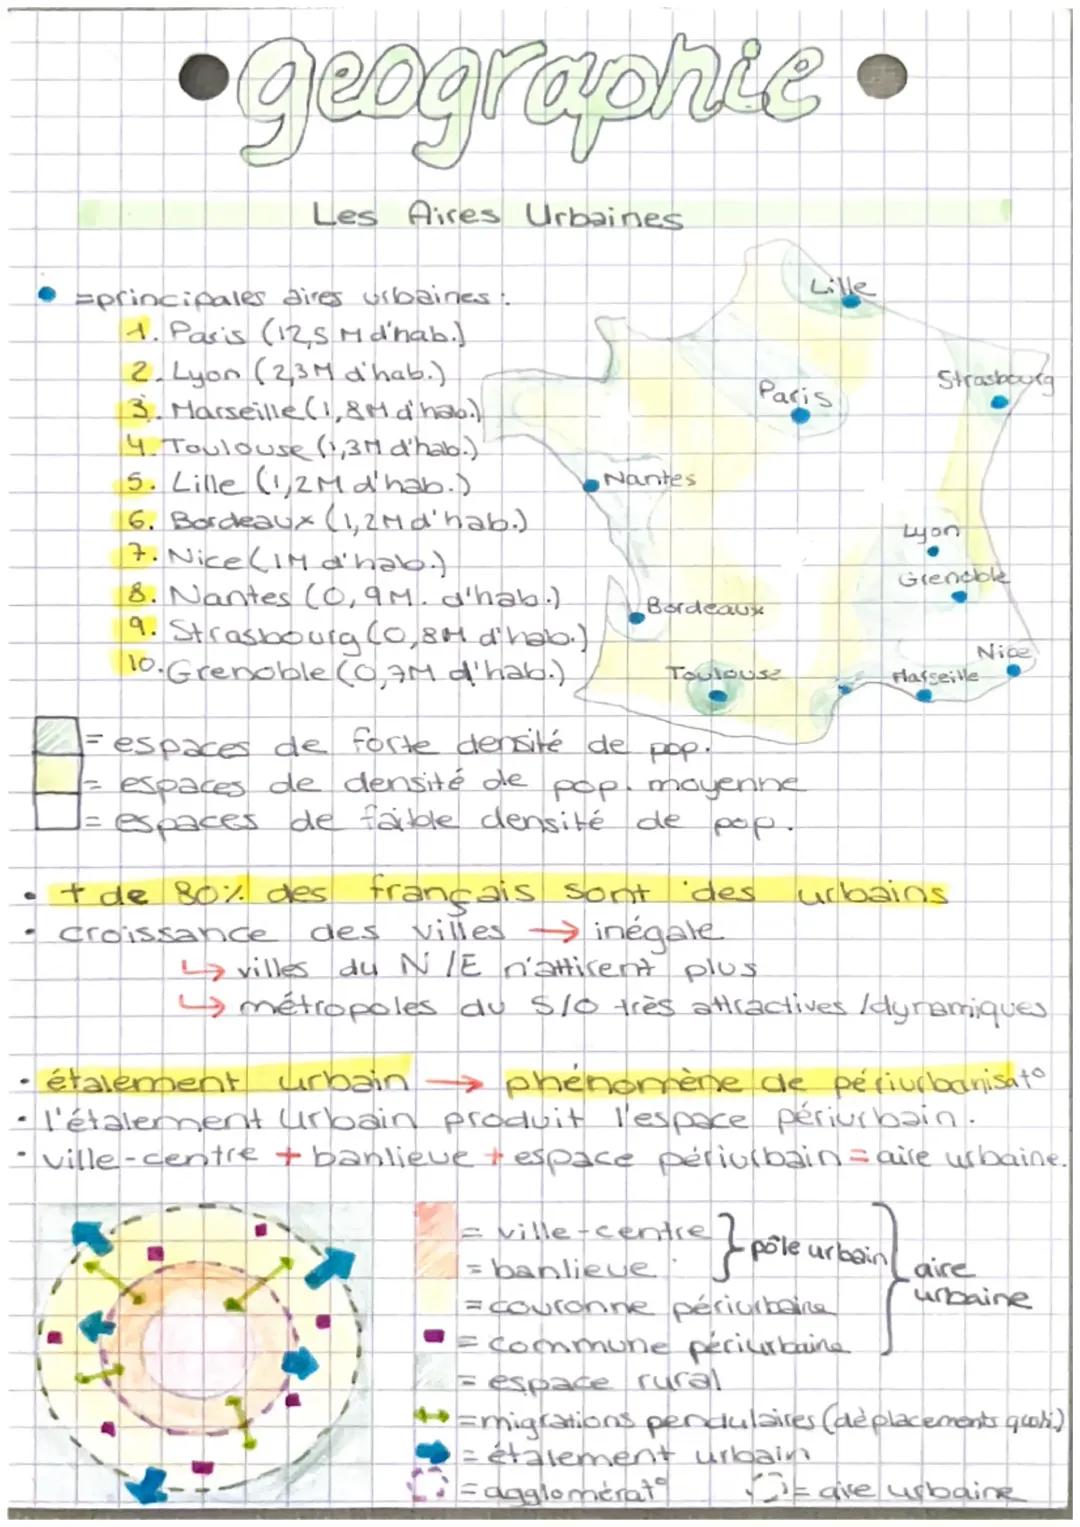 •geographie•
Les Aires Urbaines
=principales aires urbaines :
1. Paris (12,5 M d'hab.)
2. Lyon (2,3M d'hab.)
3. Marseille (1,8M d'hab.)
4. Toulouse (1,3M d'hab.)
5. Lille (1,2M d'hab.)
6. Bordeaux (1,2M d'hab.)
7. Nice (1M d'hab.)
8. Nantes (0,9M. d'hab.)
9. Strasbourg (0,8M d'hab.)
10. Grenoble (0,7M d'hab.)
Lille
Strasbourg
Paris
Nantes
Lyon
Grenoble
Bordeaux
Nice
Toulouse
Marseille
= espaces de forte densité de pop.
= espaces de densité de pop. moyenne
= espaces de faible densité de pop.
• + de 80% des français sont des urbains
• croissance des villes → inégale
↳ villes du N/E n'attirent plus
↳ métropoles du S/O très attractives /dynamiques
• étalement urbain → phénomène de périurbanisat°
• l'étalement urbain produit l'espace périurbain.
• ville-centre + banlieue + espace périurbain = aire urbaine.
= ville-centre
= banlieue
pôle urbain
aire urbaine
= couronne périurbaine
= commune périurbaine
= espace rural
= migrations pendulaires (déplacements quoti.)
= étalement urbain
= agglomérat° = aire urbaine